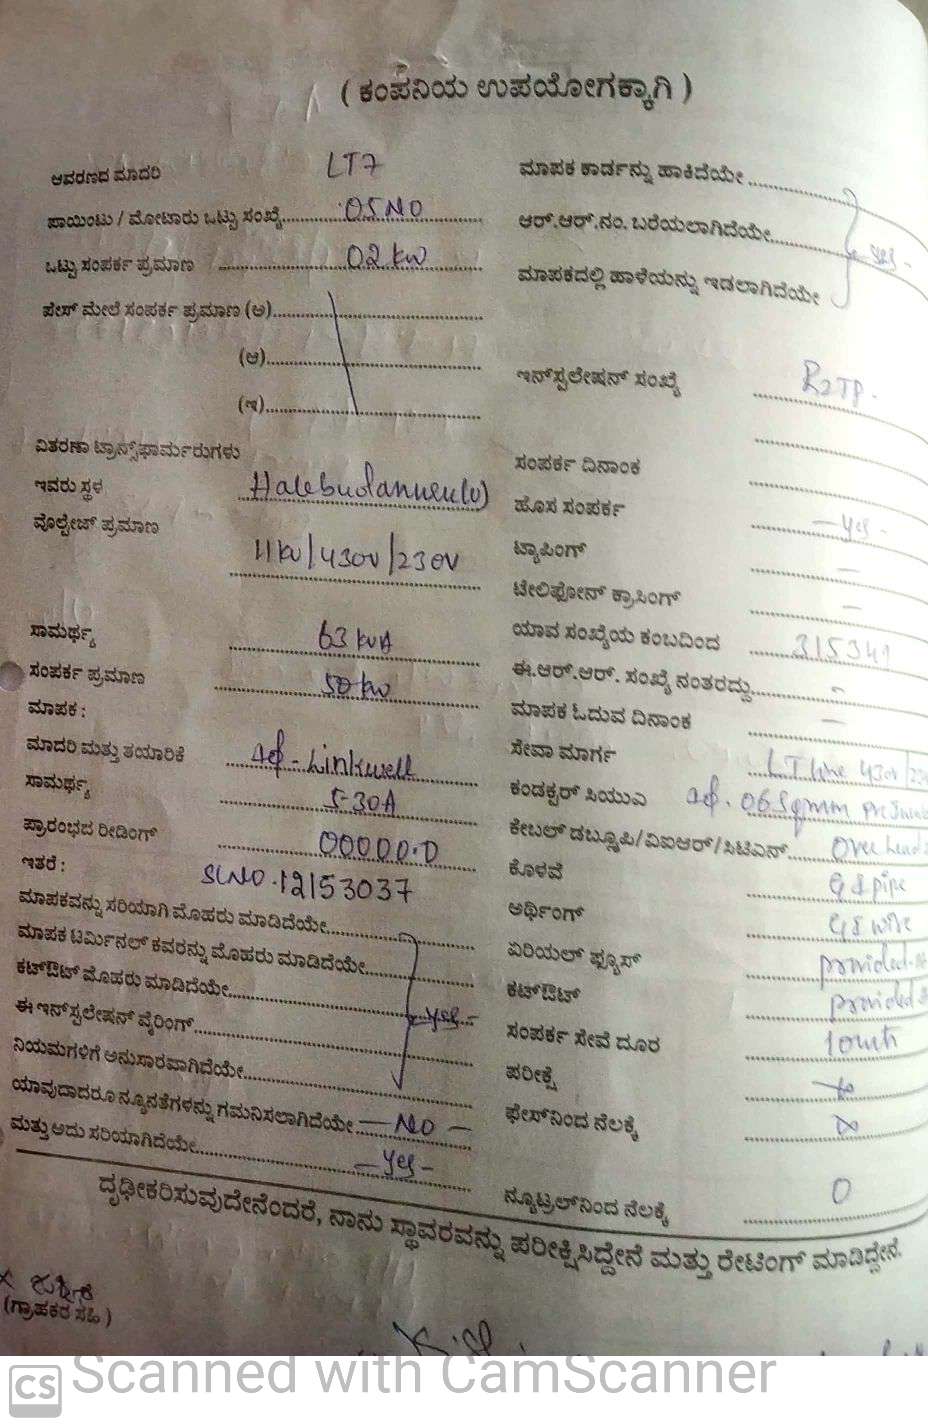 ( ಕಂಪನಿಯ ಉಪಯೋಗಕ್ಕಾಗಿ )
ಆವರಣದ ಮಾದರಿ LT7
ಪಾಯಿಂಟು / ಮೋಟಾರು ಒಟ್ಟು ಸಂಖ್ಯೆ 05 NO
ಒಟ್ಟು ಸಂಪರ್ಕ ಪ್ರಮಾಣ 02 kw
ಫೇಸ್ ಮೇಲೆ ಸಂಪರ್ಕ ಪ್ರಮಾಣ (ಅ)
(ಆ)
(ಇ)
ವಿತರಣಾ ಟ್ರಾನ್ಸ್‌ಫಾರ್ಮರುಗಳು
ಇವರು ಸ್ಥಳ
ವೊಲ್ಟೇಜ್ ಪ್ರಮಾಣ
11kv/430v/230v
ಸಾಮರ್ಥ್ಯ 63 kVA
ಸಂಪರ್ಕ ಪ್ರಮಾಣ 50 kw
ಮಾಪಕ :
ಮಾದರಿ ಮತ್ತು ತಯಾರಿಕೆ Linkwell
ಸಾಮರ್ಥ್ಯ 5-30A
ಪ್ರಾರಂಭದ ರೀಡಿಂಗ್ 00000.0
ಇತರೆ : SLNO.12153037
ಮಾಪಕವನ್ನು ಸರಿಯಾಗಿ ಮೊಹರು ಮಾಡಿದೆಯೇ
ಮಾಪಕ ಟರ್ಮಿನಲ್ ಕವರನ್ನು ಮೊಹರು ಮಾಡಿದೆಯೇ
ಕಟ್‌ಔಟ್ ಮೊಹರು ಮಾಡಿದೆಯೇ
ಈ ಇನ್‌ಸ್ಪಲೇಷನ್ ವೈರಿಂಗ್ - yes -
ನಿಯಮಗಳಿಗೆ ಅನುಸಾರವಾಗಿದೆಯೇ
ಯಾವುದಾದರೂ ನ್ಯೂನತೆಗಳನ್ನು ಗಮನಿಸಲಾಗಿದೆಯೇ - NO -
ಮತ್ತು ಅದು ಸರಿಯಾಗಿದೆಯೇ - yes -
ಮಾಪಕ ಕಾರ್ಡನ್ನು ಹಾಕಿದೆಯೇ
ಆರ್.ಆರ್.ನಂ. ಬರೆಯಲಾಗಿದೆಯೇ - yes -
ಮಾಪಕದಲ್ಲಿ ಹಾಳೆಯನ್ನು ಇಡಲಾಗಿದೆಯೇ
ಇನ್‌ಸ್ಪಲೇಷನ್ ಸಂಖ್ಯೆ
ಸಂಪರ್ಕ ದಿನಾಂಕ
ಹೊಸ ಸಂಪರ್ಕ - yes -
ಟ್ಯಾಪಿಂಗ್ -
ಟೇಲಿಫೋನ್ ಕ್ರಾಸಿಂಗ್ -
ಯಾವ ಸಂಖ್ಯೆಯ ಕಂಬದಿಂದ 315349
ಈ.ಆರ್.ಆರ್. ಸಂಖ್ಯೆ ನಂತರದ್ದು -
ಮಾಪಕ ಓದುವ ದಿನಾಂಕ -
ಸೇವಾ ಮಾರ್ಗ LT line 430v/
ಕಂಡಕ್ಟರ್ ಸಿಯುಎ 06 Sqmm
ಕೇಬಲ್ ಡಬ್ಲ್ಯೂಪಿ/ವಿಐಆರ್/ಸಿಟಿಎಸ್ Over head
ಕೊಳವೆ GI pipe
ಅರ್ಥಿಂಗ್ GI wire
ಏರಿಯಲ್ ಫ್ಯೂಸ್ provided
ಕಟ್‌ಔಟ್ provided
ಸಂಪರ್ಕ ಸೇವೆ ದೂರ
ಪರೀಕ್ಷೆ
ಫೇಸ್‌ನಿಂದ ನೆಲಕ್ಕೆ
ನ್ಯೂಟ್ರಲ್‌ನಿಂದ ನೆಲಕ್ಕೆ 0
ದೃಢೀಕರಿಸುವುದೇನೆಂದರೆ, ನಾನು ಸ್ಥಾವರವನ್ನು ಪರೀಕ್ಷಿಸಿದ್ದೇನೆ ಮತ್ತು ರೇಟಿಂಗ್ ಮಾಡಿದ್ದೇನೆ.
(ಗ್ರಾಹಕರ ಸಹಿ )
CS Scanned with CamScanner